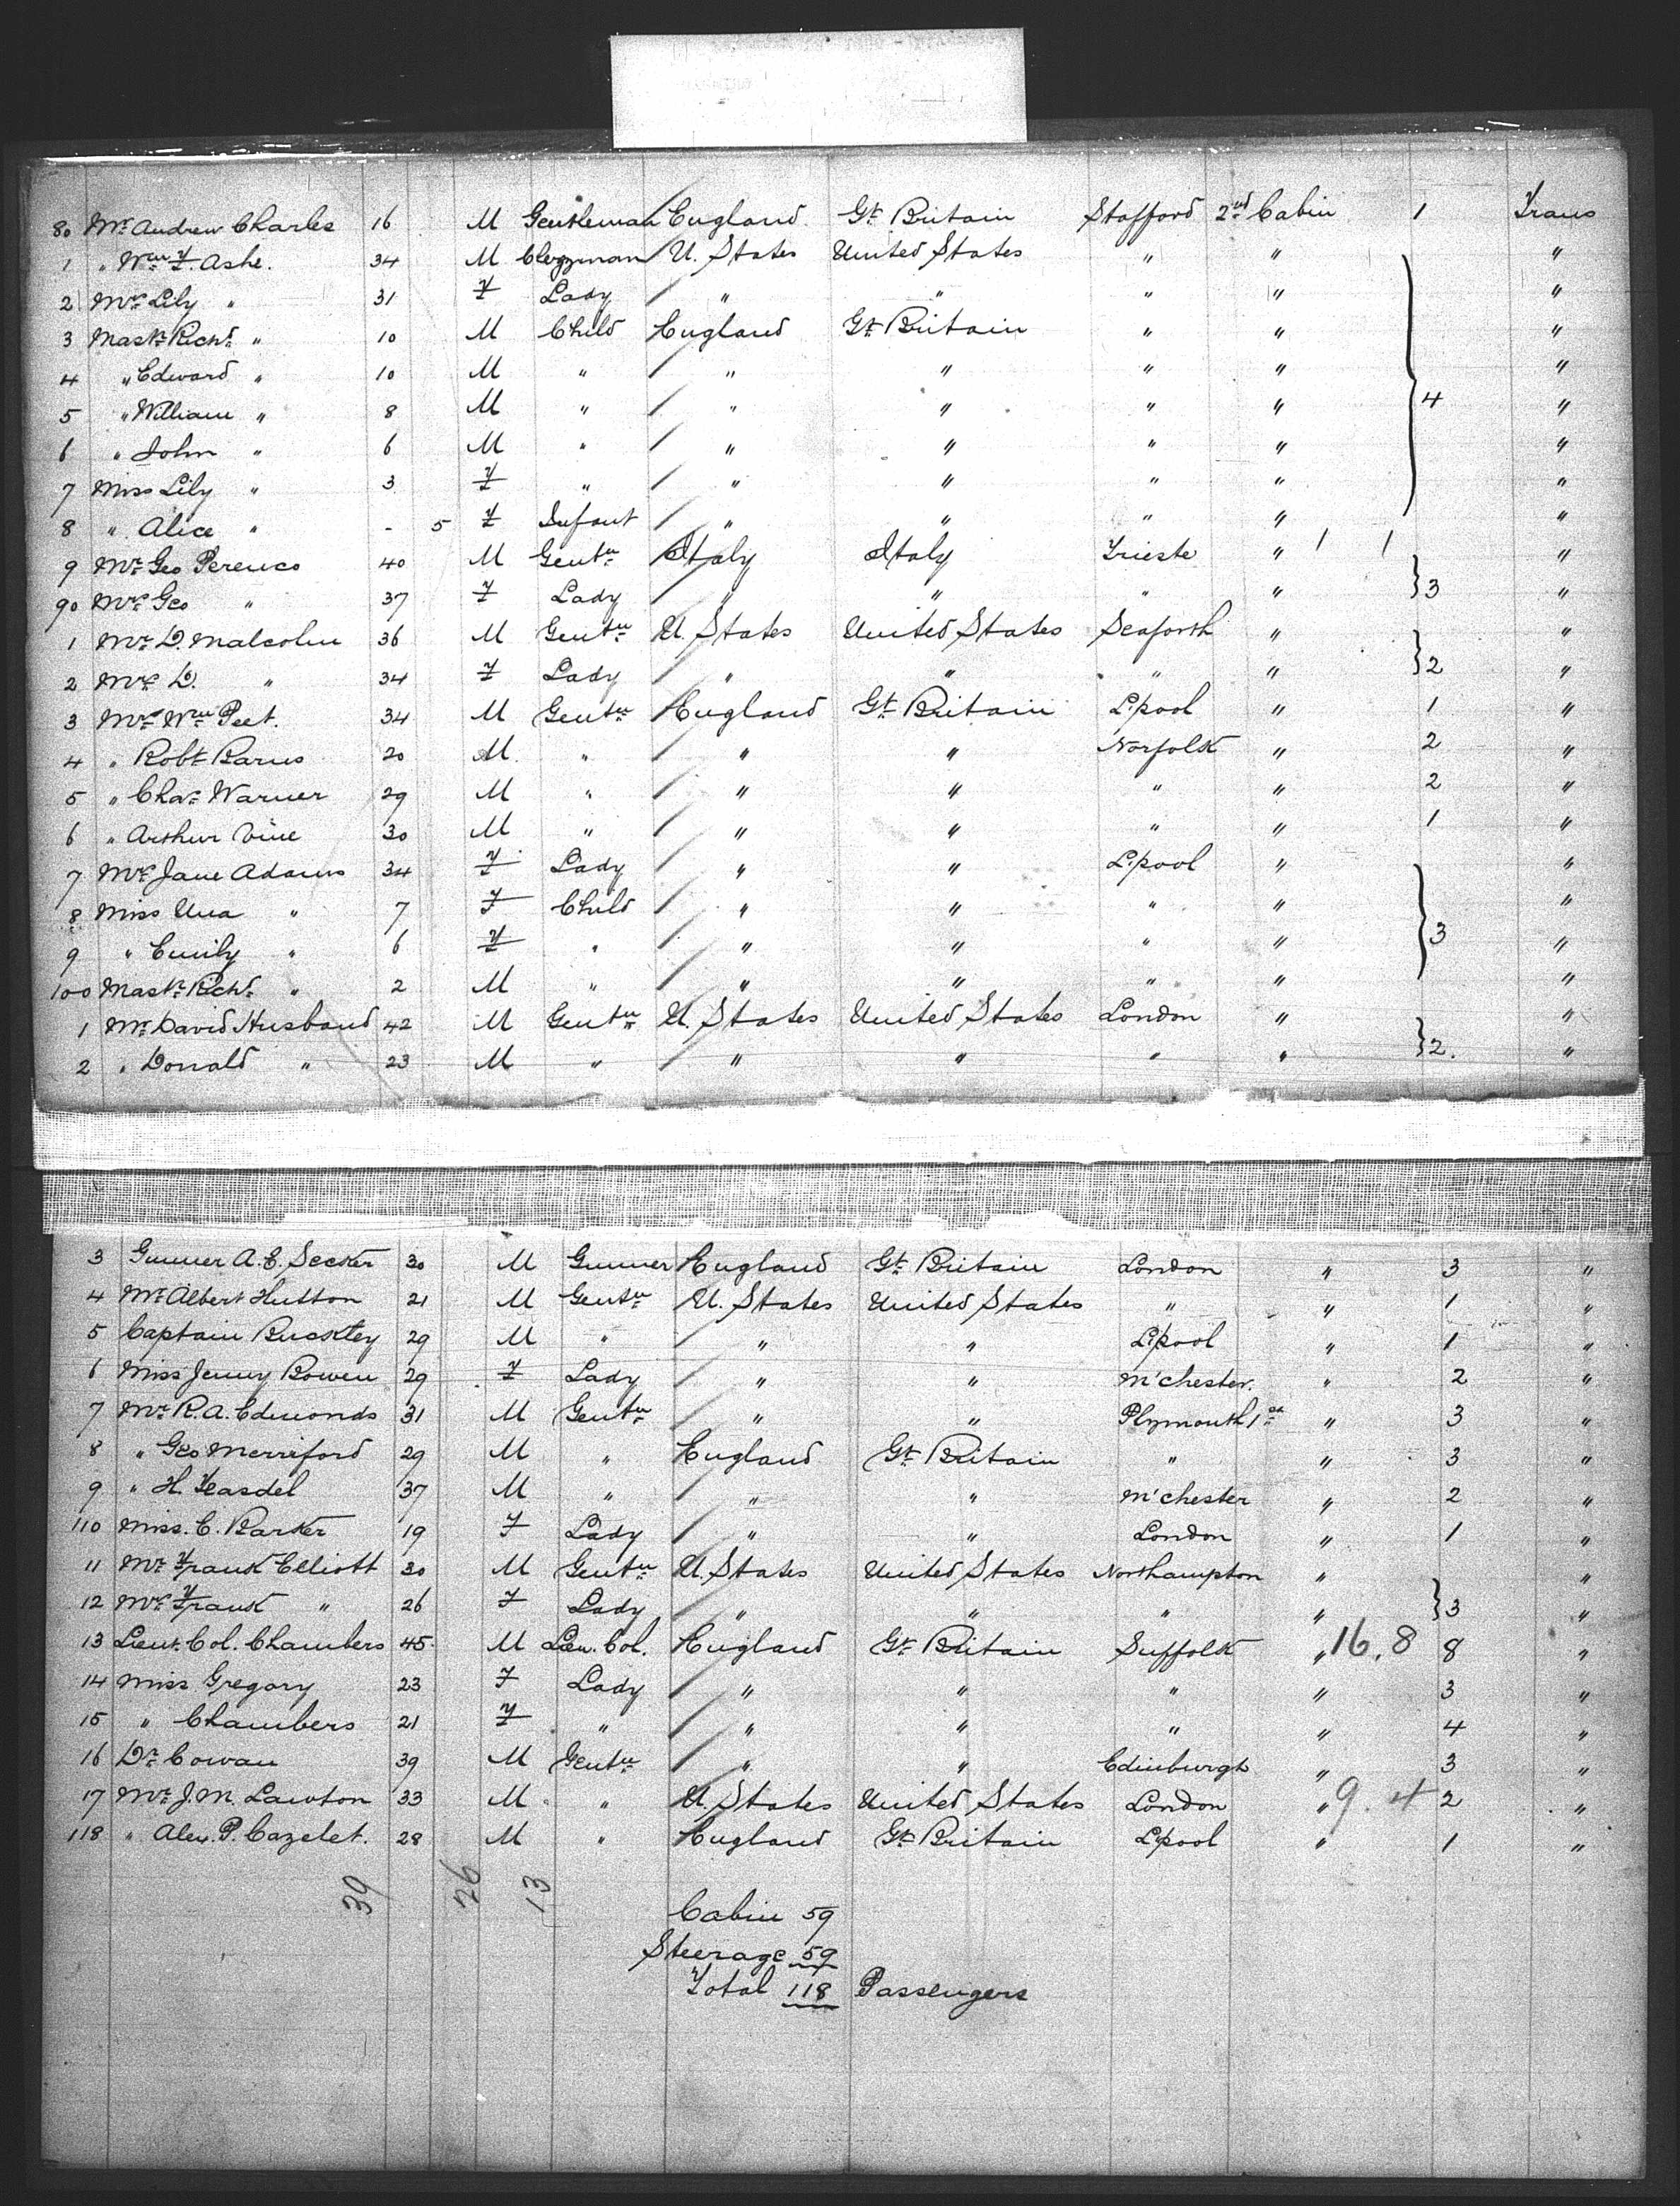 80 Mr. Andrew Charles 16 M Gentleman England Gt. Britain Stafford 2nd Cabin 1 Trans
1 " Wm F. Ashe. 34 M Clergyman U. States United States " " "
2 Mrs Lily " 31 F Lady " " " " "
3 Mastr. Richd. " 10 M Child England Gt. Britain " " "
4 " Edward " 10 M " " " " " "
5 " William " 8 M " " " " " 4 "
6 " John " 6 M " " " " " "
7 Miss Lily " 3 F " " " " " "
8 " Alice " - 5 F Infant " " " " "
9 Mr. Geo 40 M Gentn Italy Italy Trieste " 1 1 "
90 Mrs Geo " 37 F Lady " " " " 3 "
1 Mr. D. Malcolm 36 M Gentn U. States United States Seaforth " "
2 Mrs D. " 34 F Lady " " " " 2 "
3 Mr. Wm Peet. 34 M Gentn England Gt. Britain L.pool " 1 "
4 " Robt. 20 M " " " Norfolk " 2 "
5 " Chas. Warner 29 M " " " " " 2 "
6 " Arthur Vine 30 M " " " " " 1 "
7 Mrs Jane Adams 34 F Lady " " L.pool " "
8 Miss Una " 7 F Child " " " " "
9 " Emily " 6 F " " " " " 3 "
100 Mastr. Richd. " 2 M " " " " " "
1 Mr. David Husband 42 M Gentn U. States United States London " "
2 " Donald " 23 M " " " " " 2. "
3 Gunner A. E. Secker 30 M Gunner England Gt. Britain London " 3 "
4 Mr. Albert Hutton 21 M Gentn U. States United States " " 1 "
5 Captain Buckley 29 M " " " L.pool " 1 "
6 Miss Jenny Bowen 29 F Lady " " M'chester. " 2 "
7 Mr. R. A. Edmonds 31 M Gentn " " Plymouth 1st " 3 "
8 " Geo Merriford 29 M " England Gt. Britain " " 3 "
9 " H. Teasdel 37 M " " " M'chester " 2 "
110 Miss. C. Barker 19 F Lady " " London " 1 "
11 Mr. Frank Elliott 30 M Gentn U. States United States Northampton " "
12 Mrs Frank " 26 F Lady " " " " 3 "
13 Lieut. Col. Chambers 45 M Lieu. Col. England Gt. Britain Suffolk " 16.8 8 "
14 Miss Gregory 23 F Lady " " " " 3 "
15 " Chambers 21 F " " " " " 4 "
16 Dr. Cowan 39 M Gentn " " Edinburgh " 3 "
17 Mr. J. M. Lawton 33 M " U. States United States London " 9.4 2 "
118 " Alex. P. Cazelet. 28 M " England Gt. Britain L.pool " 1 "
39 26 13
Cabin 59
Steerage 59
Total 118 Passengers